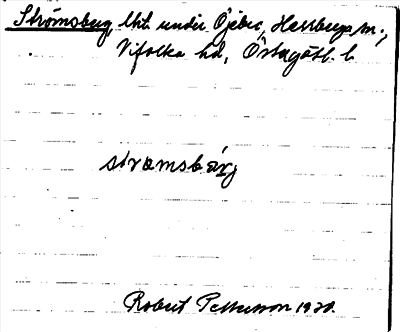 Strömsberg, lht. under Öjebro, Herrberga sn.,
Vifolka hd, Östergötl. l.
strömsbärj
Robert Pettersson 1920.